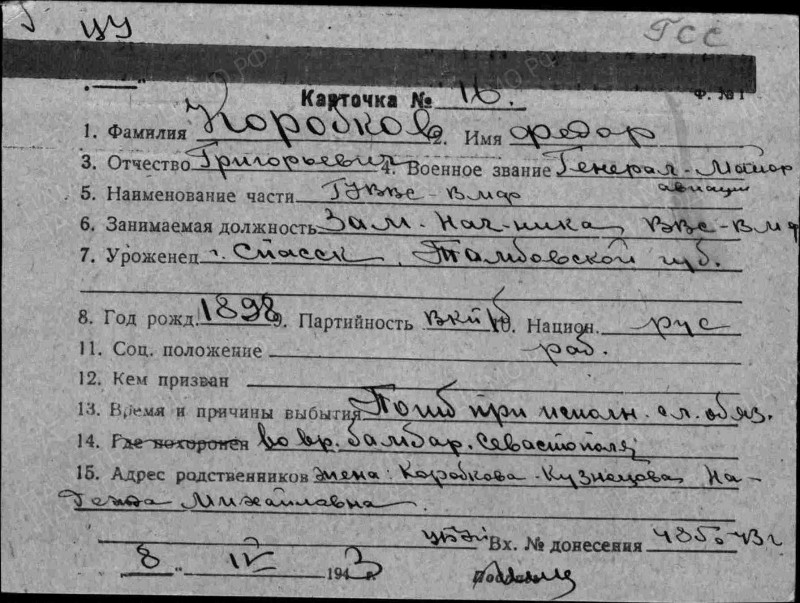 ЦУ ГСС
Карточка № 16. Ф. № 1
1. Фамилия Коробков 2. Имя Федор
3. Отчество Григорьевич 4. Военное звание Генерал-Майор авиации
5. Наименование части ГУВВС-ВМФ
6. Занимаемая должность Зам. Нач-ника ВВС-ВМФ
7. Уроженец г. Спасск, Тамбовской губ.
8. Год рожд. 1898 9. Партийность ВКП/б 10. Национ. рус
11. Соц. положение раб.
12. Кем призван
13. Время и причины выбытия Погиб при исполн. сл. обяз.
14. Где похоронен во вр. бомбар. Севастополя
15. Адрес родственников жена: Коробкова-Кузнецова На-
Михайловна
Вх. № донесения 485.43г
8 " IV 1943 г.